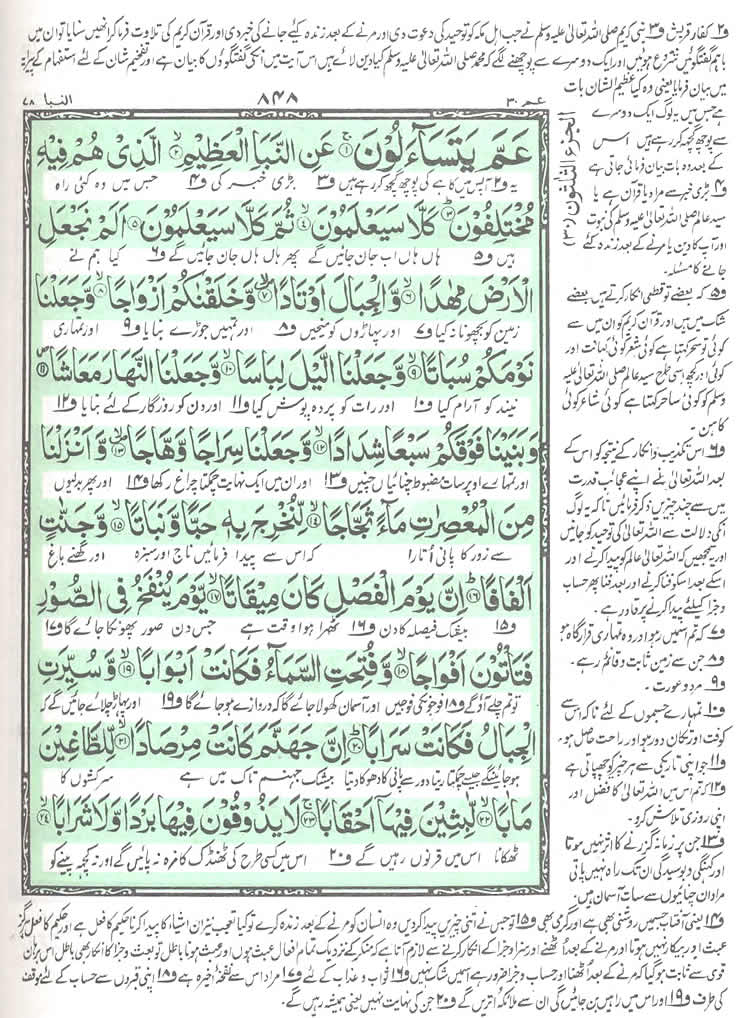 ف۲ کفار قریش ف۳ نبی کریم صلی اللہ تعالیٰ علیہ وسلم نے جب اہل مکہ کو توحید کی دعوت دی اور مرنے کے بعد زندہ کئے جانے کی خبر دی اور قرآن کریم کی تلاوت فرما کر انھیں سنایا تو ان میں
باہم گفتگوئیں شروع ہوئیں اور ایک دوسرے سے پوچھنے لگے کہ محمد صلی اللہ تعالیٰ علیہ وسلم کیا دین لائے ہیں اس آیت میں انکی گفتگوؤں کا بیان ہے اور تفخیم شان کے لئے استفہام کے پیرایہ
میں بیان فرمایا یعنی وہ کیا عظیم الشان بات
عم ۳۰
۸۴۸
النبا ۷۸
الجزء الثلثون (۳۰)
عَمَّ يَتَسَآءَلُوْنَ ۱ عَنِ النَّبَاِ الْعَظِيْمِ ۲ الَّذِىْ هُمْ فِيْهِ
یہ ف۲ آپس میں کاہے کی پوچھ گچھ کر رہے ہیں ف۳ بڑی خبر کی ف۴ جس میں وہ کئی راہ
مُخْتَلِفُوْنَ ۳ كَلَّا سَيَعْلَمُوْنَ ۴ ثُمَّ كَلَّا سَيَعْلَمُوْنَ ۵ اَلَمْ نَجْعَلِ
ہیں ف۵ ہاں ہاں اب جان جائیں گے پھر ہاں ہاں جان جائیں گے ف۶ کیا ہم نے
الْاَرْضَ مِهٰدًا ۶ وَّالْجِبَالَ اَوْتَادًا ۷ وَّخَلَقْنٰكُمْ اَزْوَاجًا ۸ وَّجَعَلْنَا
زمین کو بچھونا نہ کیا ف۷ اور پہاڑوں کو میخیں ف۸ اور تمہیں جوڑے بنایا ف۹ اور تمہاری
نَوْمَكُمْ سُبَاتًا ۹ وَّجَعَلْنَا الَّيْلَ لِبَاسًا ۱۰ وَّجَعَلْنَا النَّهَارَ مَعَاشًا ۱۱
نیند کو آرام کیا ف۱۰ اور رات کو پردہ پوش کیا ف۱۱ اور دن کو روزگار کے لئے بنایا ف۱۲
وَّبَنَيْنَا فَوْقَكُمْ سَبْعًا شِدَادًا ۱۲ وَّجَعَلْنَا سِرَاجًا وَّهَّاجًا ۱۳ وَّاَنْزَلْنَا
اور تمہارے اوپر سات مضبوط چنائیاں چنیں ف۱۳ اور ان میں ایک نہایت چمکتا چراغ رکھا ف۱۴ اور پھر بدلیوں
مِنَ الْمُعْصِرٰتِ مَآءً ثَجَّاجًا ۱۴ لِّنُخْرِجَ بِهٖ حَبًّا وَّنَبَاتًا ۱۵ وَّجَنّٰتٍ
سے زور کا پانی اتارا کہ اس سے پیدا فرمائیں اناج اور سبزہ اور گھنے باغ
اَلْفَافًا ۱۶ اِنَّ يَوْمَ الْفَصْلِ كَانَ مِيْقَاتًا ۱۷ يَّوْمَ يُنْفَخُ فِى الصُّوْرِ
ف۱۵ بیشک فیصلہ کا دن ف۱۶ ٹھہرا ہوا وقت ہے جس دن صور پھونکا جائے گا ف۱۷
فَتَاْتُوْنَ اَفْوَاجًا ۱۸ وَّفُتِحَتِ السَّمَآءُ فَكَانَتْ اَبْوَابًا ۱۹ وَّسُيِّرَتِ
تو تم چلے آؤ گے ف۱۸ فوجوں کی فوجیں اور آسمان کھولا جائے گا کہ دروازے ہو جائے گا ف۱۹ اور پہاڑ چلائے جائیں گے کہ
الْجِبَالُ فَكَانَتْ سَرَابًا ۲۰ اِنَّ جَهَنَّمَ كَانَتْ مِرْصَادًا ۲۱ لِّلطَّاغِيْنَ
ہو جائینگے جیسے چمکتا ریتا دور سے پانی کا دھوکا دیتا بیشک جہنم تاک میں ہے سرکشوں کا
مَاٰبًا ۲۲ لّٰبِثِيْنَ فِيْهَآ اَحْقَابًا ۲۳ لَا يَذُوْقُوْنَ فِيْهَا بَرْدًا وَّلَا شَرَابًا ۲۴
ٹھکانا اس میں قرنوں رہیں گے ف۲۰ اس میں کسی طرح کی ٹھنڈک کا مزہ نہ پائیں گے اور نہ کچھ پینے کو
ہے جس میں یہ لوگ ایک دوسرے
سے پوچھ گچھ کر رہے ہیں اس
کے بعد وہ بات بیان فرمائی جاتی ہے
ف۴ بڑی خبر سے مراد یا قرآن ہے یا
سید عالم صلی اللہ تعالیٰ علیہ وسلم کی نبوت
اور آپ کا دین یا مرنے کے بعد زندہ کئے
جانے کا مسئلہ۔
ف۵ کہ بعضے تو قطعی انکار کرتے ہیں بعضے
شک میں ہیں اور قرآن کریم کو ان میں سے
کوئی تو سحر کہتا ہے کوئی شعر کوئی کہانت اور
کوئی اور کچھ اسی طرح سید عالم صلی اللہ تعالیٰ علیہ
وسلم کو کوئی ساحر کہتا ہے کوئی شاعر کوئی
کاہن۔
ف۶ اس تکذیب و انکار کے نتیجہ کو اس کے
بعد اللہ تعالیٰ نے اپنے عجائب قدرت
میں سے چند چیزیں ذکر فرمائیں تاکہ یہ لوگ
انکی دلالت سے اللہ تعالیٰ کی توحید کو جانیں
اور یہ سمجھیں کہ اللہ تعالیٰ عالم کو پیدا کرنے اور
اسکے بعد اسکو فنا کرنے اور بعد فنا پھر حساب
و جزا کیلئے پیدا کرنے پر قادر ہے۔
ف۷ کہ تم اسمیں رہو اور وہ تمہاری قرارگاہ ہو
ف۸ جن سے زمین ثابت و قائم رہے۔
ف۹ مرد و عورت۔
ف۱۰ تمہارے جسموں کے لئے تاکہ اس سے
کوفت اور تکان دور ہو اور راحت حاصل ہو۔
ف۱۱ جو اپنی تاریکی سے ہر چیز کو چھپاتی ہے
ف۱۲ کہ تم اس میں اللہ تعالیٰ کا فضل اور
اپنی روزی تلاش کرو۔
ف۱۳ جن پر زمانہ گزرنے کا اثر نہیں ہوتا
اور کہنگی و بوسیدگی ان تک راہ نہیں پاتی
مراد ان چنائیوں سے سات آسمان ہیں
ف۱۴ یعنی آفتاب جسمیں روشنی بھی ہے اور گرمی بھی ف۱۵ تو جس نے اتنی چیزیں پیدا کر دیں وہ انسان کو مرنے کے بعد زندہ کرے تو کیا تعجب نیز ان اشیاء کا پیدا کرنا حکیم کا فعل ہے اور حکیم کا فعل ہرگز
عبث اور بیکار نہیں ہوتا اور مرنے کے بعد اٹھنے اور سزا و جزا کے انکار کرنے سے لازم آتا ہے کہ منکر کے نزدیک تمام افعال عبث ہوں اور عبث ہونا باطل تو بعث و جزا کا انکار بھی باطل اس برہان
قوی سے ثابت ہو گیا کہ مرنے کے بعد اٹھنا اور حساب و جزا ضرور ہے اسمیں شک نہیں ف۱۶ ثواب و عذاب کے لئے ف۱۷ مراد اس سے نفخہ اخیرہ ہے ف۱۸ اپنی قبروں سے حساب کے لئے موقف
کی طرف ف۱۹ اور اس میں راہیں بن جائیں گی ان سے ملائکہ اتریں گے ف۲۰ جن کی نہایت نہیں یعنی ہمیشہ رہیں گے۔